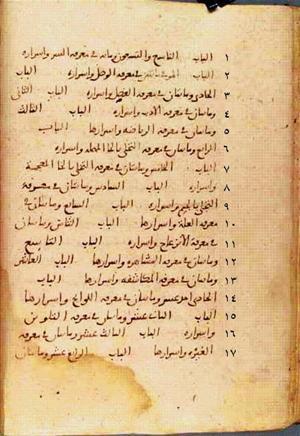 ١ الباب التاسع والتسعون ومايه في معرفة السر واسراره
٢ الباب الموفي مائتين في معرفة الوصل واسراره الباب
٣ الحادي ومايتان في معرفة الفصل واسراره الباب الثاني
٤ ومايتان في معرفة الادب واسراره الباب الثالث
٥ ومايتان في معرفة الرياضه واسرارها الباب
٦ الرابع ومايتان في معرفة التحلي بالحا المهملة واسراره
٧ الباب الخامس ومايتان في معرفة التخلي بالخا المعجمة
٨ واسراره الباب السادس ومايتان في معرفة
٩ التجلي بالجيم واسراره الباب السابع ومايتان في
١٠ معرفة العلة واسرارها الباب الثامن ومايتان
١١ في معرفة الانزعاج واسراره الباب التاسع
١٢ ومايتان في معرفة المشاهده واسرارها الباب العاشر
١٣ ومايتان في معرفة المكاشفه واسرارها الباب
١٤ الحادي احد عشر ومايتان في معرفة اللوائح واسرارها
١٥ الباب الثاني عشر ومايتان في معرفة التلوين
١٦ واسراره الباب الثالث عشر ومايتان في معرفة
١٧ الغيره واسرارها الباب الرابع عشر ومايتان